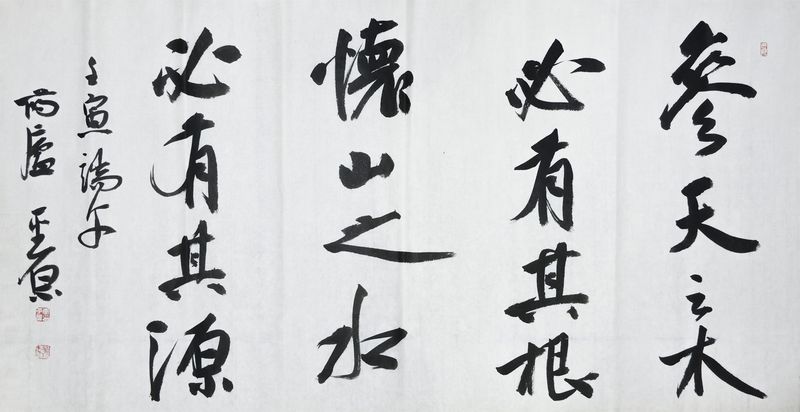 參天之木
必有其根
懷山之水
必有其源
壬寅端午